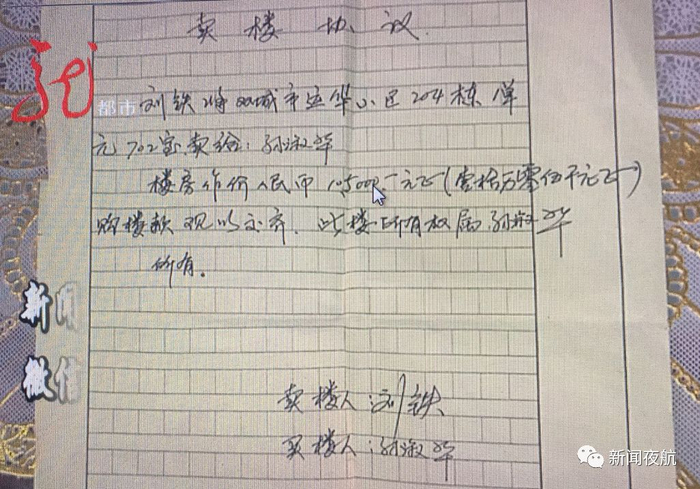 卖楼协议
都市
刘铁将双城市宏华小区204栋 单
元702室卖给:孙淑华
楼房作价人民币 105000-元正(壹拾万零伍仟元正)
购楼款现以交齐、此楼所有权属孙淑华
所有。
新闻
微信
卖楼人:刘铁
买楼人:孙淑华
新闻夜航